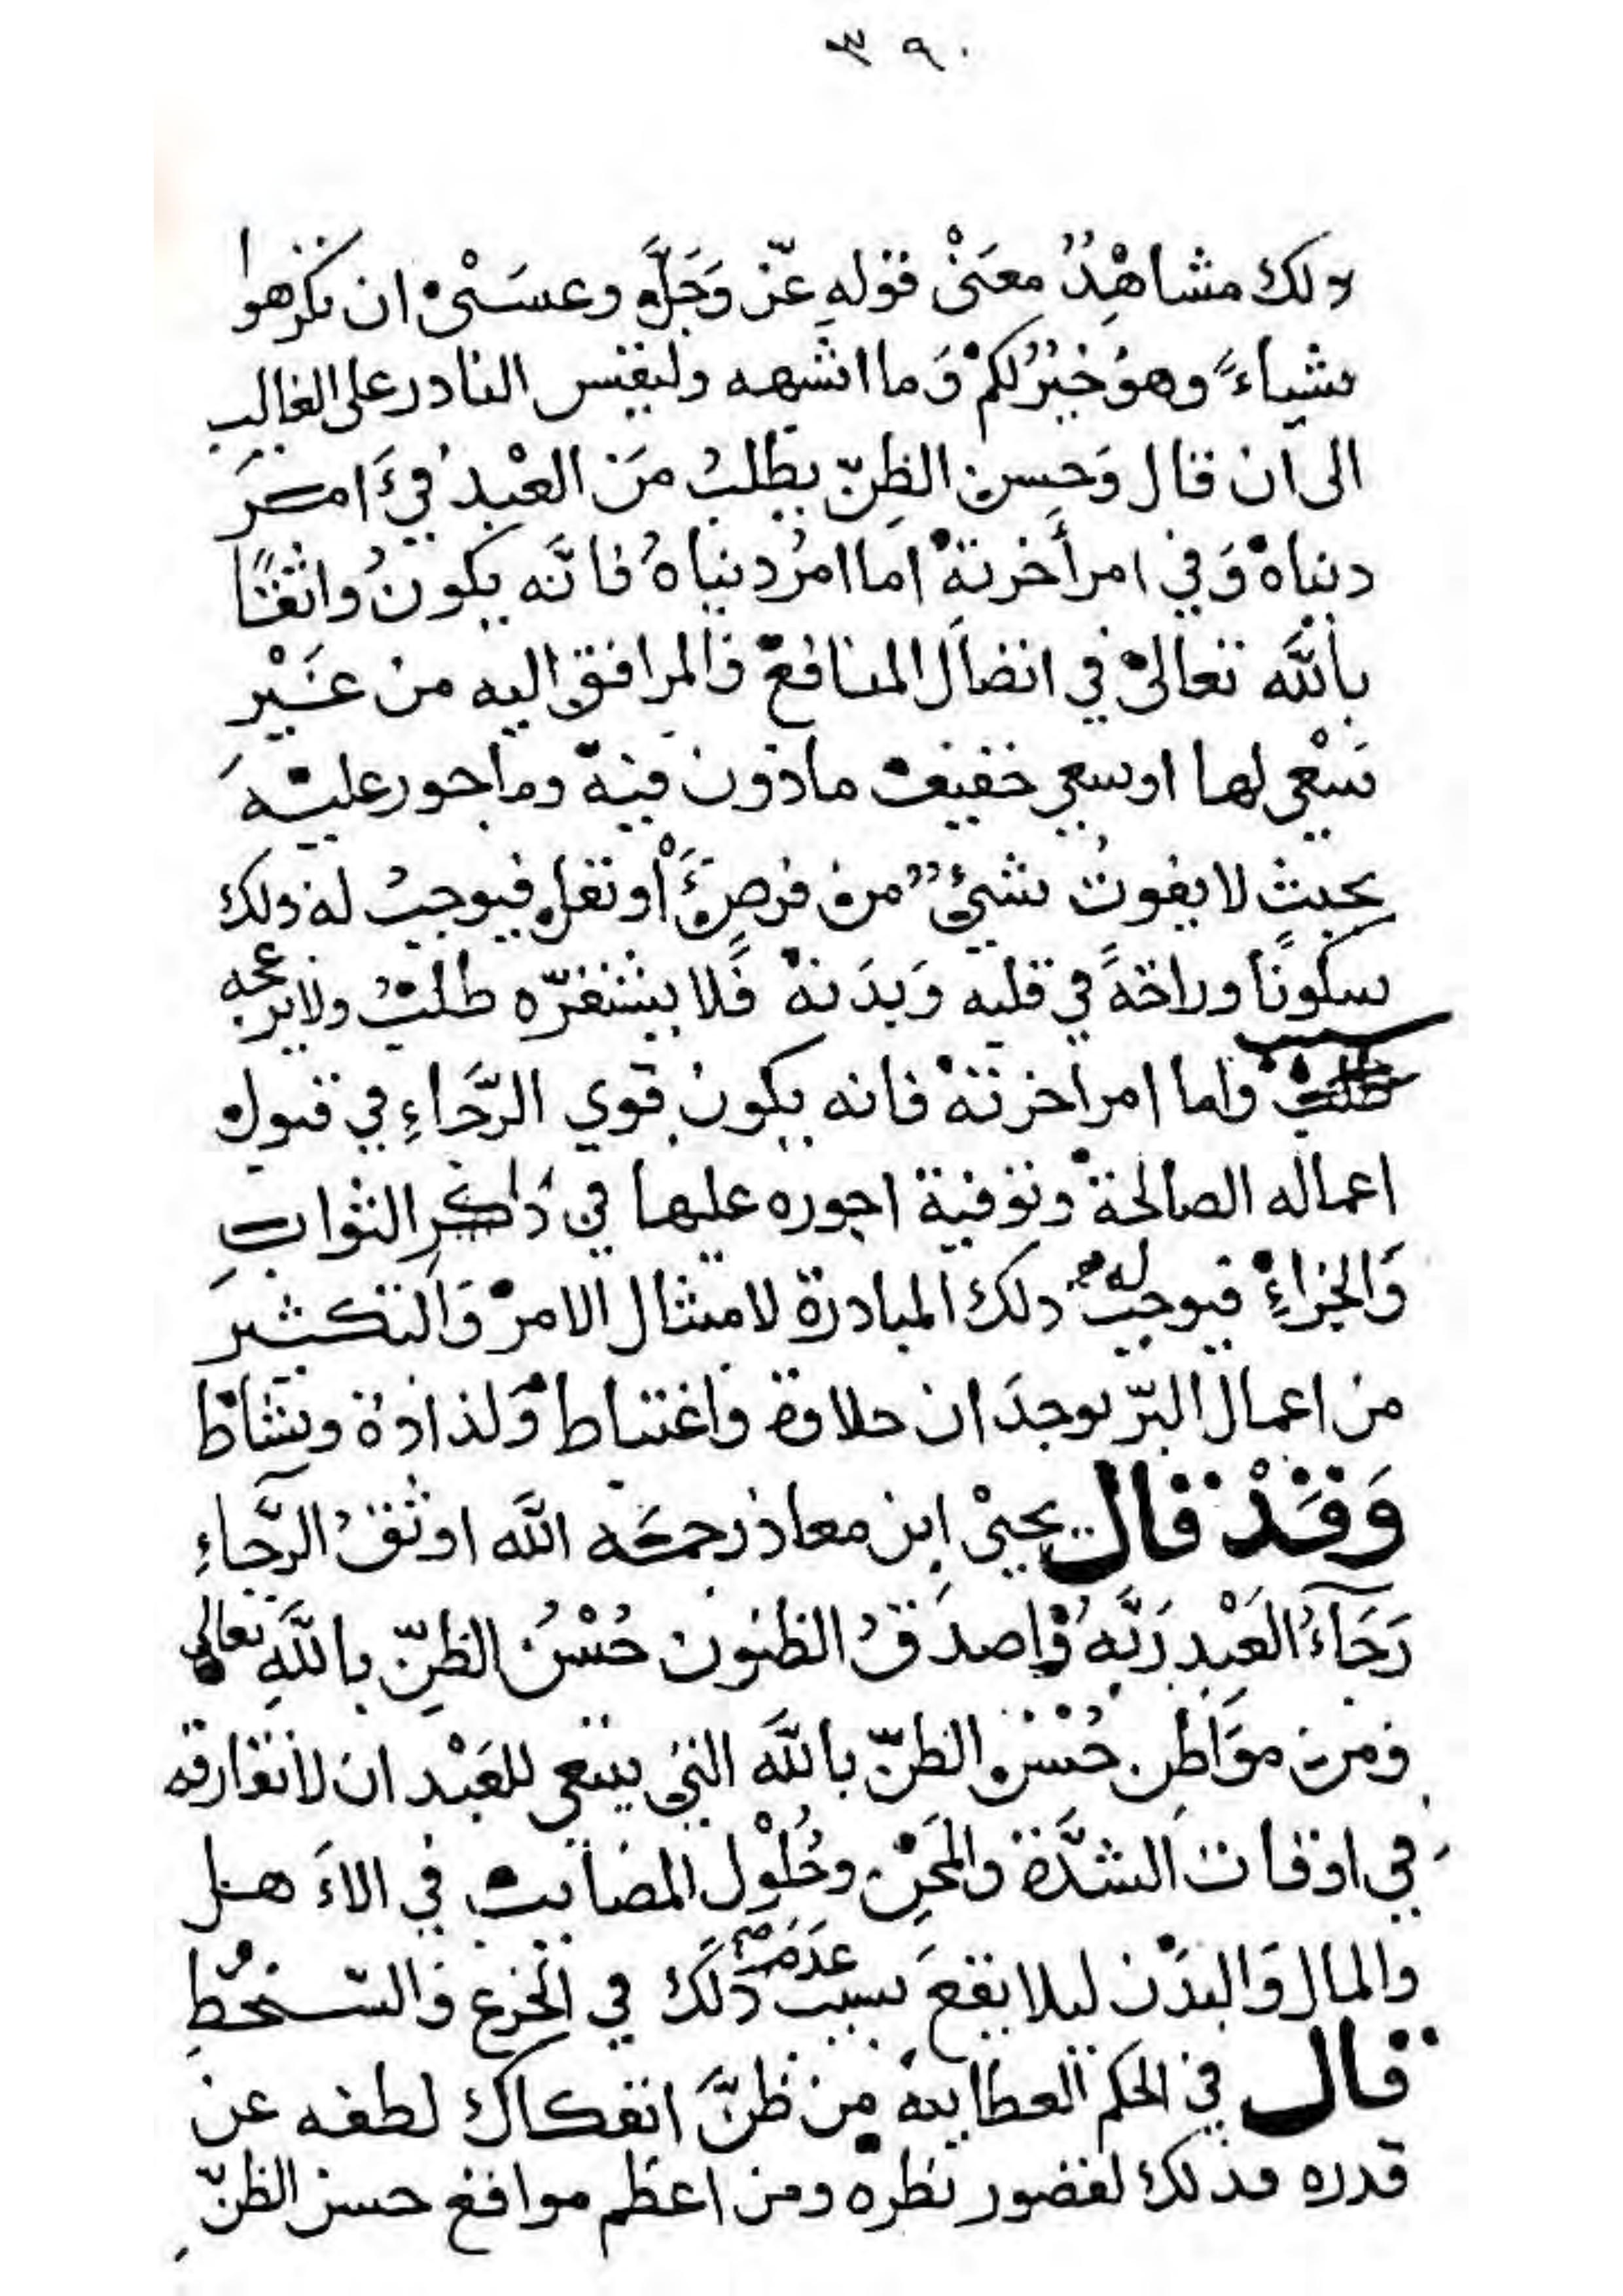 ٣٩٠
ولك مشاهِدٌ معنَىْ قوله عزّ وَجَلَّ وعسَىْ ان تكرهوا
شياءً وهوُ خيرٌ لكمْ وَما اشبهه وليقس النادر على الغالب
الى ان قال وَحسن الظنّ يطلبُ مَن العبْد فيَ امر
دنياهْ وَفي امر أخرتهْ اما امرُ دنياهُ فانَّه يكونُ واثقًا
باللَّه تعالىْ في اتصَال المنافعْ والمرافق اليه من غيْر
سَعْي لها او سعي خفيف ماذون فيهْ وماجور عليهَ
بحيث لا يفوتُ شيئٌ من فرضٍ أو نفلٍ فيوجبُ له ذلك
سكونًا وراحَةً في قلبه وَبدَنهْ فَلا يستفزّه طلبُ ولا يزعجه
سبب واما امر اخرتهْ فانه يكون قوي الرَّجَاءِ في قبول
اعماله الصالحةْ وتوفية اجوره عليها في دار الثواب
وَالجزاءِ فيوجبُ له ذلك المبادرة لامتثال الامرْ وَالتكثير
من اعمال البرّ بوجدَان حلاوة واغتباط وَلذاذة ونشاط
وَقَدْ قال يحيىْ ابن معاذ رحمَه اللَّه اوثقُ الرَّجاءِ
رَجَآءُ العَبْدِ رَبَّهُ وَاصدَقُ الظنون حُسْنُ الظنِّ باللَّهِ تعالى
ومن موَاطن حُسْن الظنّ باللَّه التي ينبغي للعَبْد ان لا تفارقه
في اوقات الشدَّة والمحَن وحُلوْل المصَايب في الاَهل
والمال وَالبدَن ليلا يقعَ بسبب عدم ذلَك في الجزع وَالسّخطِ
قال في الحكم العطاييه من ظنَّ انفكاك لطفه عن
قدره فذلك لقصور نظره ومن اعظم مواقع حسن الظنّ